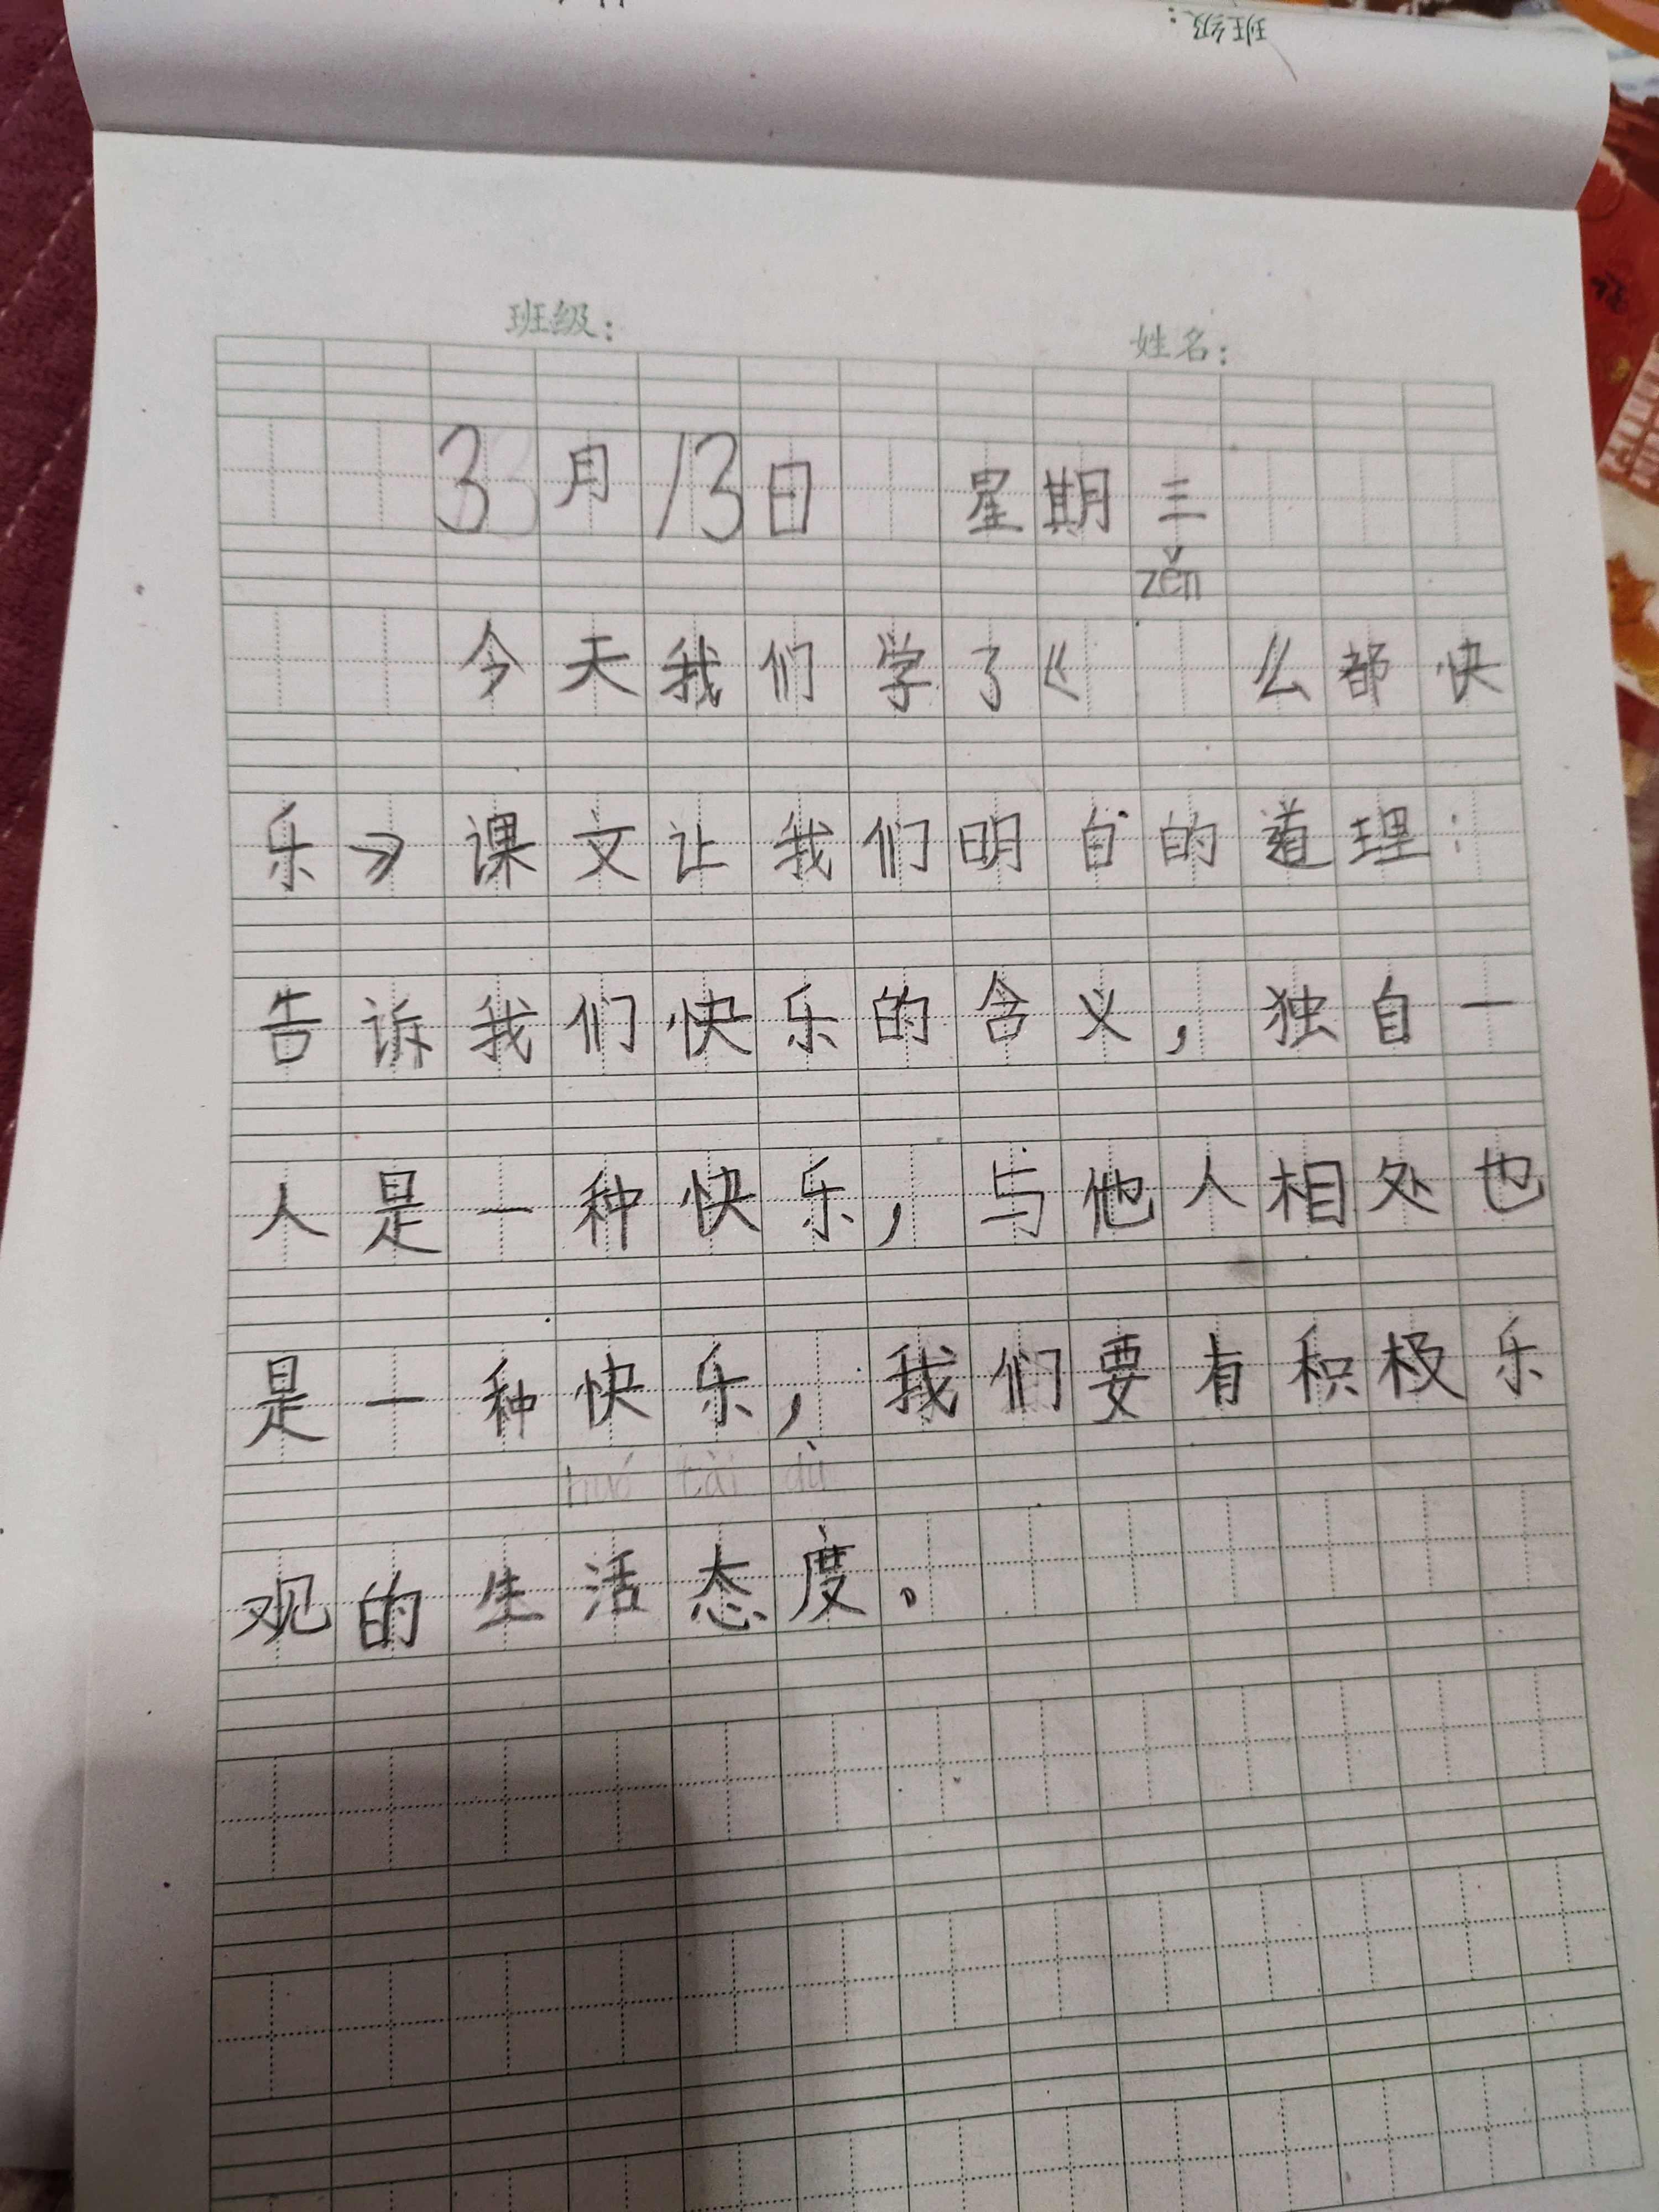 班级：
班级： 姓名：
3月13日 星期三
zěn
今天我们学了《 么都快
乐》课文让我们明白的道理：
告诉我们快乐的含义，独自一
人是一种快乐，与他人相处也
是一种快乐，我们要有积极乐
huó tài dù
观的生活态度。